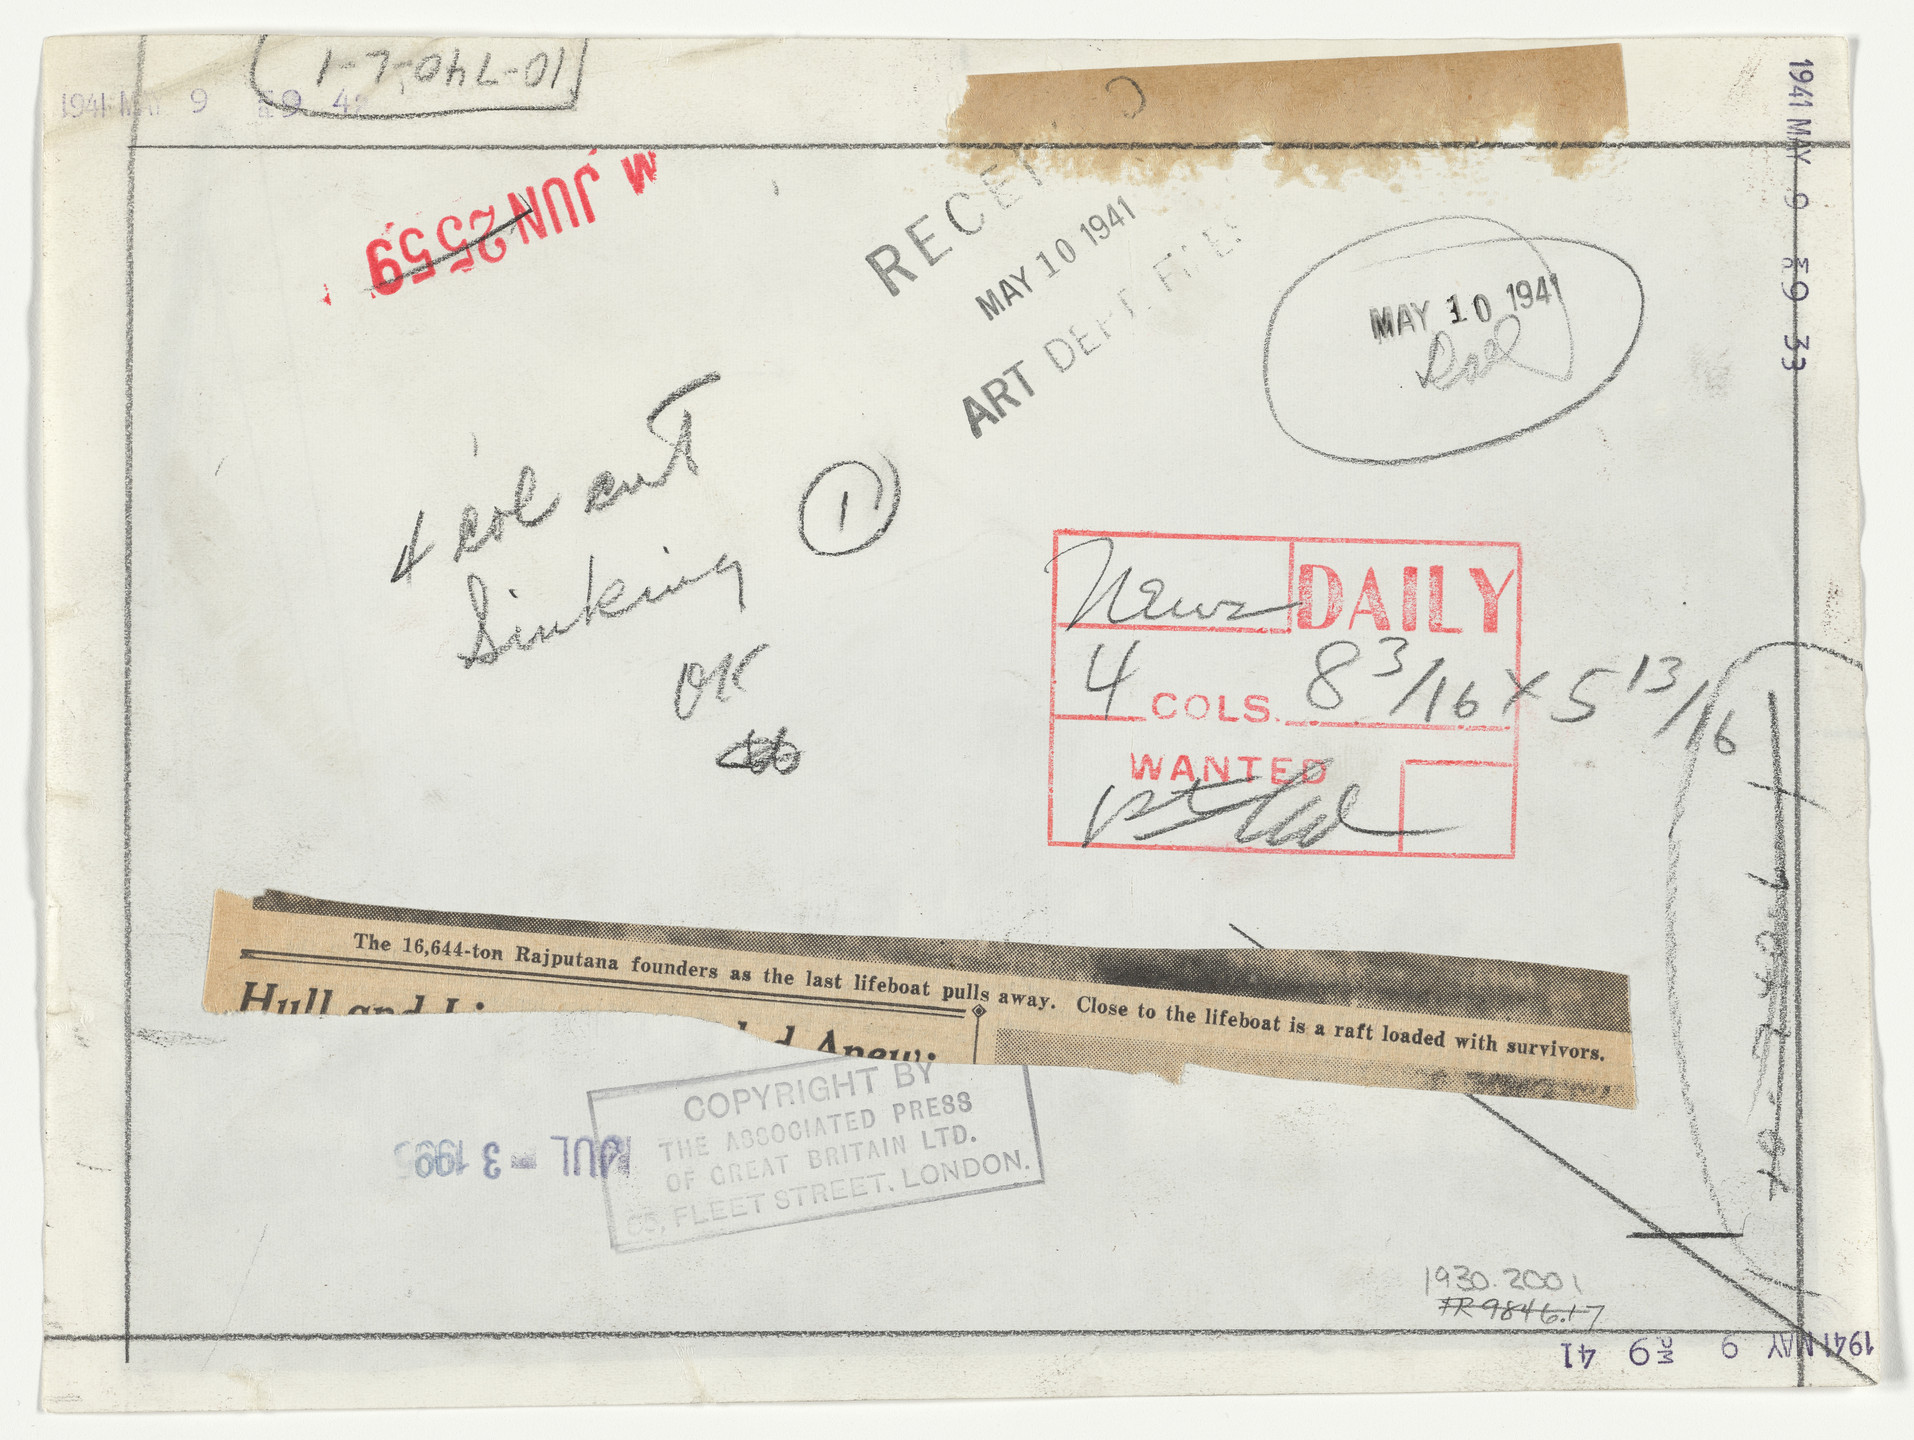 10-740-L-1
1941 MAY 9 PM 9 42
1941 MAY 9 PM 9 33
JUN 25 59
RECEI
MAY 10 1941
ART DEPT. FILES
MAY 10 1941
4 col cut
Sinking
1
OK
News DAILY
4 COLS. 8 3/16 x 5 13/16
WANTED
The 16,644-ton Rajputana founders as the last lifeboat pulls away. Close to the lifeboat is a raft loaded with survivors.
Hull and
Anew:
COPYRIGHT BY
THE ASSOCIATED PRESS
OF GREAT BRITAIN LTD.
85, FLEET STREET, LONDON.
JUL - 3 1995
1930.2001
FR 9846.17
1941 MAY 9 PM 9 41